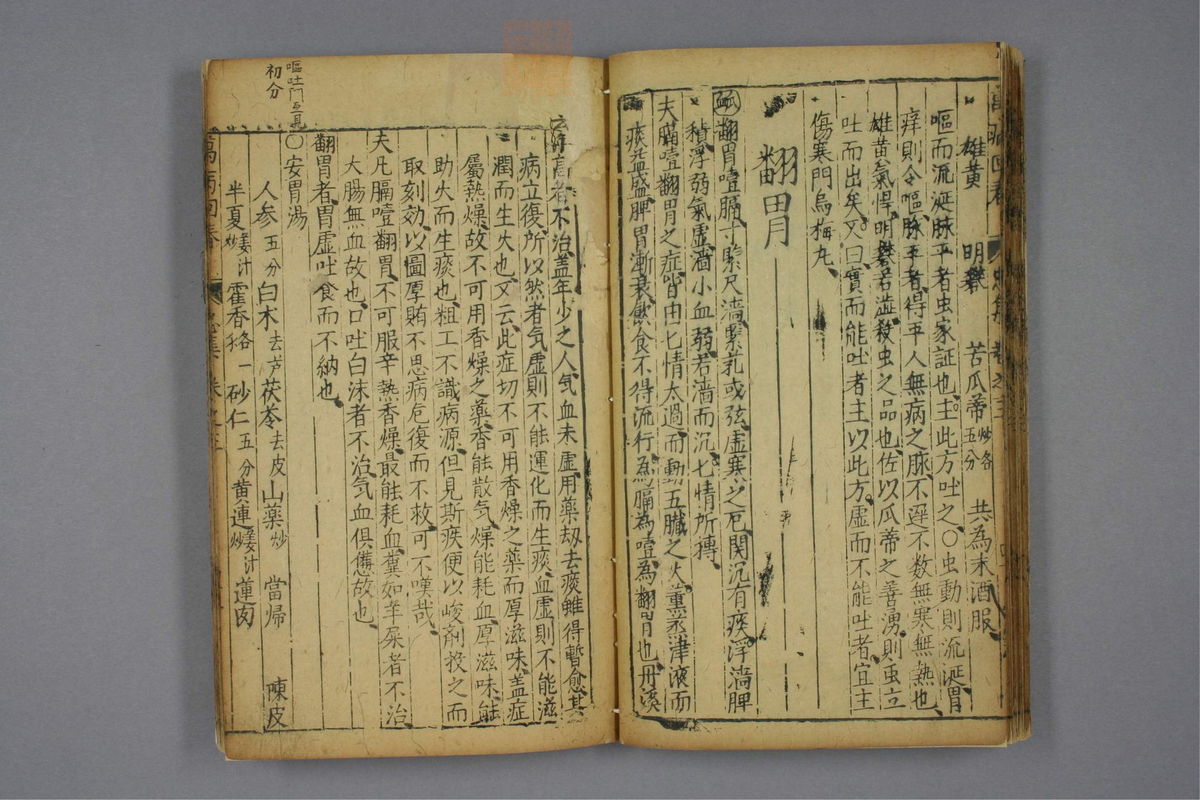 雄黄 明礬 苦瓜蒂炒各五分 共為末酒服
嘔而流涎脉平者虫家証也主此方吐之○虫動則流涎胃
痒則令嘔脉平者得平人無病之脉不遅不数無寒無熱也
雄黄氣悍明礬若澁殺虫之品也佐以瓜蒂之善湧則虫立
吐而出矣又曰實而能吐者主以此方虛而不能吐者宜主
傷寒門烏梅丸
翻胃
翻胃噎膈寸緊尺濇緊芤或弦虛寒之厄関沉有痰浮濇脾
積浮弱氣虛濇小血弱若濇而沉七情所摶
夫膈噎翻胃之症皆由七情太過而動五臟之火薰蒸津液而
痰益盛脾胃漸衰飲食不得流行為膈為噎為翻胃也丹溪
年高者不治盖年少之人气血未虛用藥刼去痰雖得暫愈其
病立復所以然者气虛則不能運化而生痰血虛則不能滋
潤而生火也又云此症切不可用香燥之藥而厚滋味盖症
屬熱燥故不可用香燥之藥香能散气燥能耗血厚滋味能
助火而生痰也粗工不識病源但見斯疾便以峻劑投之而
取刻効以圖厚賄不思病危復而不救可不嘆哉
夫凡膈噎翻胃不可服辛熱香燥最能耗血糞如羊屎者不治
大腸無血故也口吐白沫者不治气血俱憊故也
翻胃者胃虛吐食而不納也
嘔吐門互見
初分
○安胃湯
人参五分白术去芦茯苓去皮山藥炒 當歸 陳皮
半夏姜汁炒藿香各一砂仁五分黄連姜汁炒蓮肉